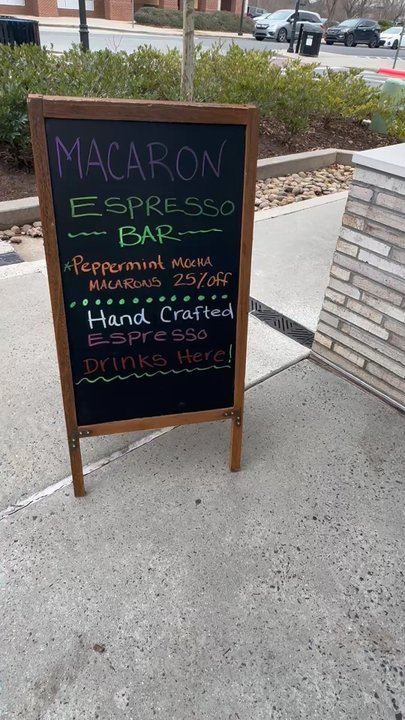 MACARON
ESPRESSO
BAR
*Peppermint MOCHA
MACARONS 25% off
Hand Crafted
ESPRESSO
Drinks Here!